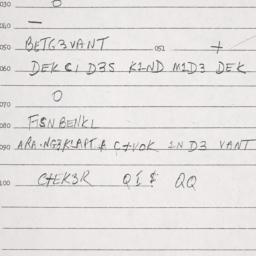 030 O
040 —
050 BETG3VANT 051 +
060 DEK CI D3S K1ND M1D3 DEK
070 O
080 FISN BENKL
090 ARA·NG3KLAPT A C+VOK 1N D3 VANT
100 C+EK3R QI$ QQ